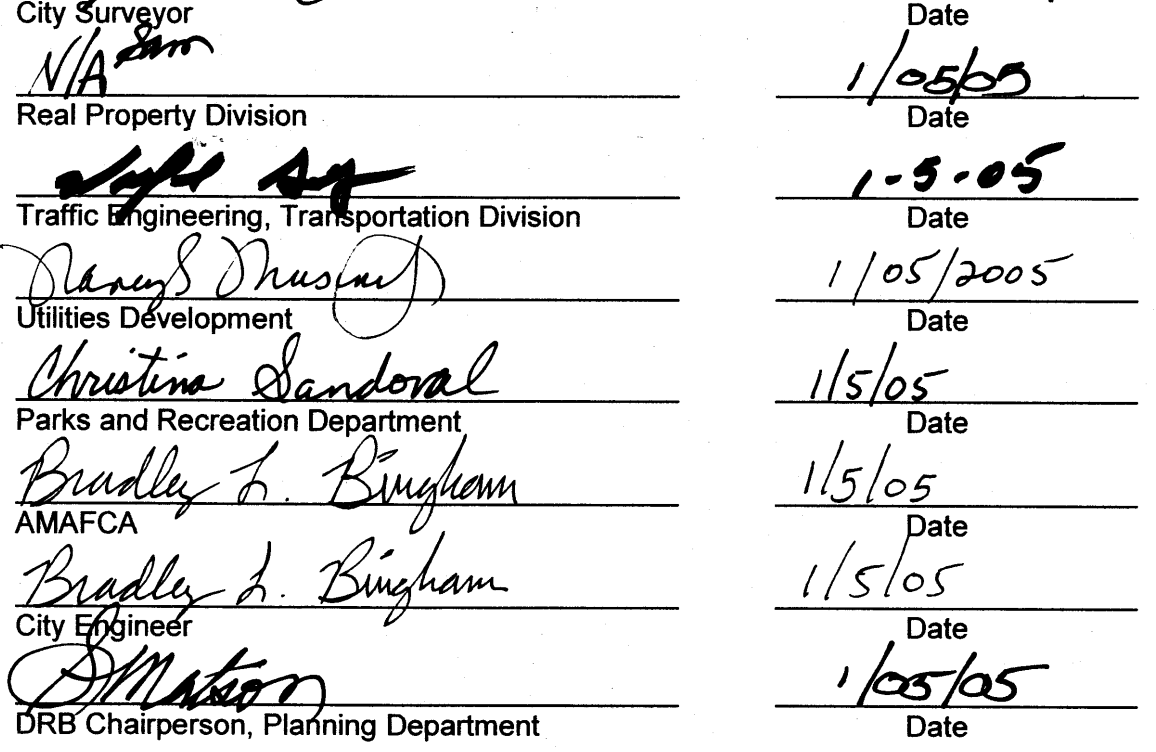 City Surveyor Date
N/A 1/05/05
Real Property Division Date
1-5-05
Traffic Engineering, Transportation Division Date
Nancy 1/05/2005
Utilities Development Date
Christina Sandoval 1/5/05
Parks and Recreation Department Date
Bradley L. Bingham 1/5/05
AMAFCA Date
Bradley L. Bingham 1/5/05
City Engineer Date
S Matson 1/05/05
DRB Chairperson, Planning Department Date